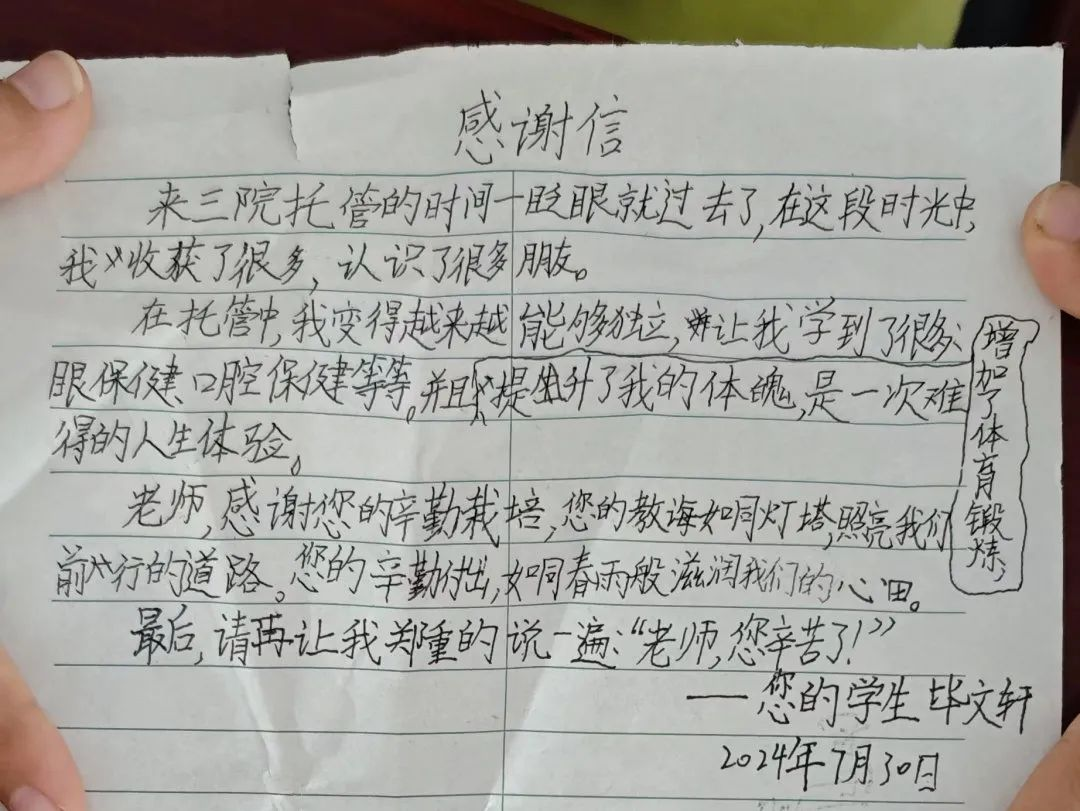 感谢信
来三院托管的时间一眨眼就过去了,在这段时光中,
我收获了很多,认识了很多朋友。
在托管中,我变得越来越能够独立,让我学到了很多、
眼保健、口腔保健等等,并且提升了我的体魄,是一次难
得的人生体验。
增加了体育锻炼,
老师,感谢您的辛勤栽培,您的教诲如同灯塔,照亮我们
前行的道路。您的辛勤付出,如同春雨般滋润我们的心田。
最后,请再让我郑重的说一遍:“老师,您辛苦了!”
——您的学生毕文轩
2024年7月30日